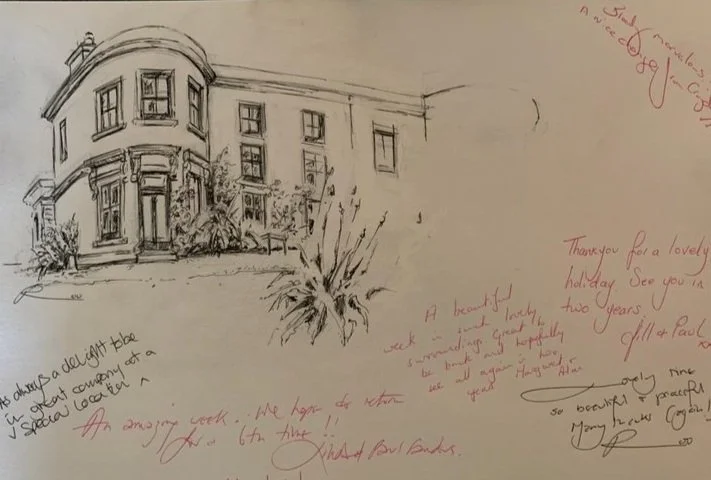 Thankyou for a lovely
holiday. See you in
two years.
Jill & Paul
A beautiful
week in such lovely
surroundings great to
be back and hopefully
we all again in two
years Margaret &
Alan
As always a delight to be
in great company at a
special location
An amazing week.. We hope to return
for a 6th time!!
and Paul
Lovely time
so beautiful & peaceful
Many thanks (again!)